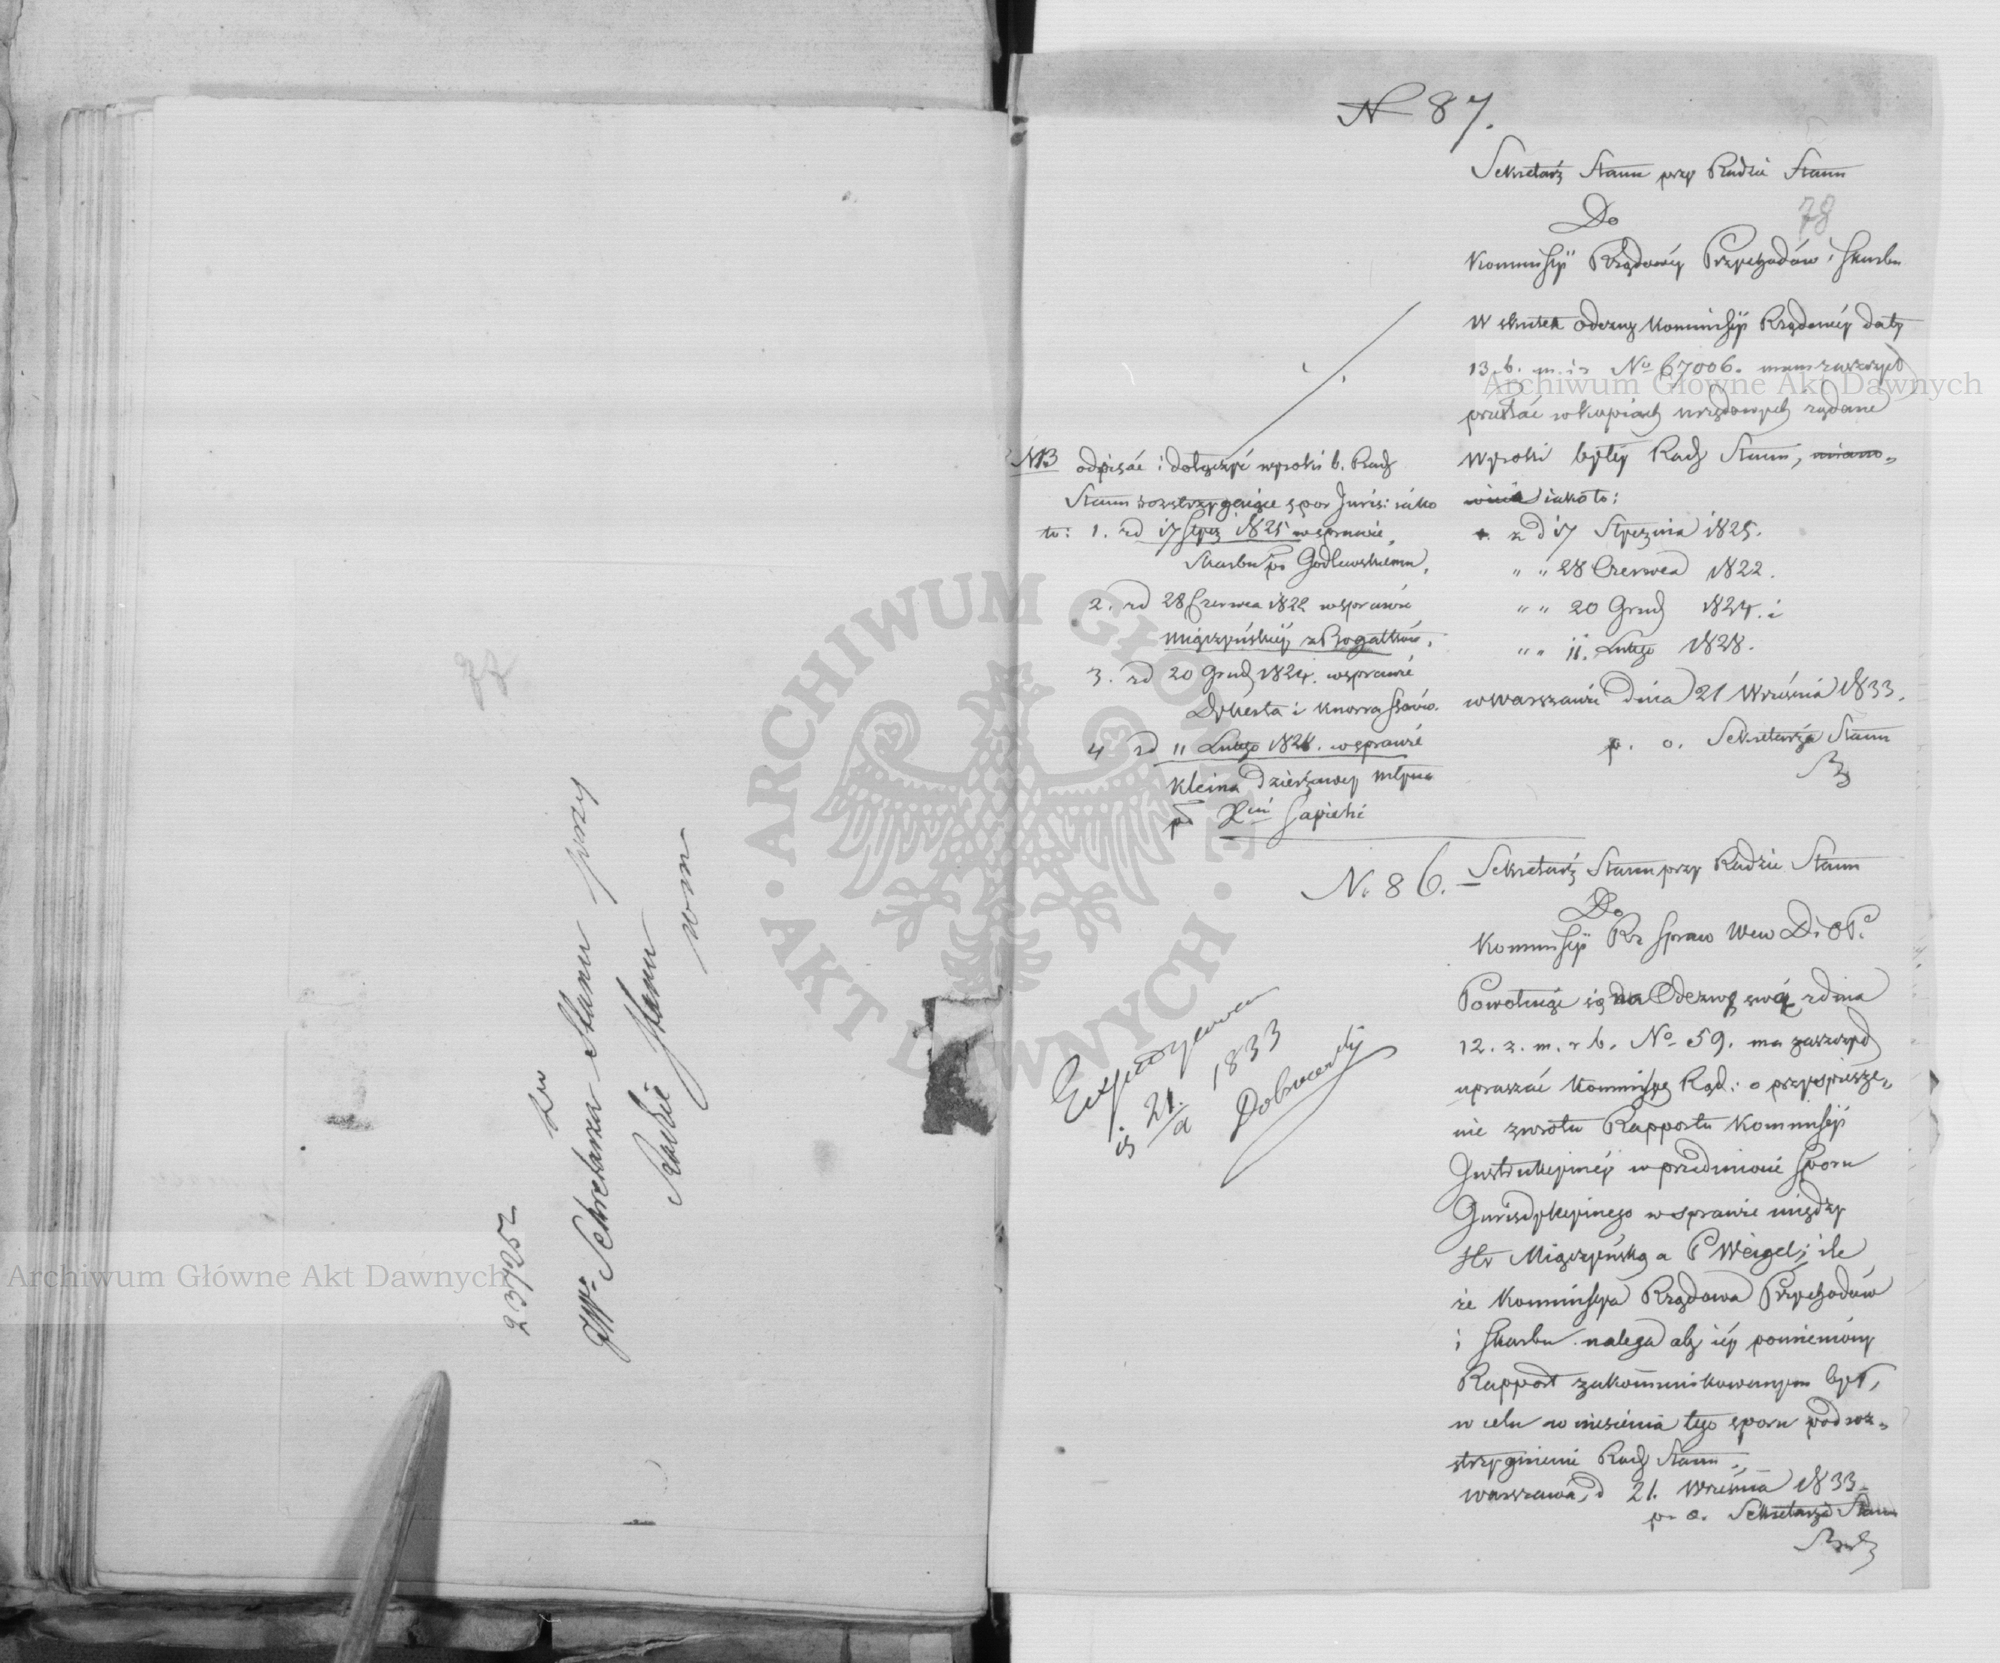 23725/2
Do
JW. Sekretarza Stanu przy
Radzie Stanu
N 87.
78
Sekretarz Stanu przy Radzie Stanu
Do
Kommissyi Rządowéy Przychodów i Skarbu
W skutek odezwy Kommissyi Rządowéy daty
13. b. m. i r. No 67006. mam zaszczyt
przesłać w kopiach urzędowych żądane
wyroki byłéy Rady Stanu, miano-
wicie iako to:
z d 17 Stycznia 1825.
" " 28 Czerwca 1822.
" " 20 Grud 1824. i
" " 11. Lutego 1828.
w Warszawie dnia 21 Września 1833.
p. o. Sekretarza Stanu
NB odpisać i dołączyć wyroki b. Rady
Stanu rozstrzygaiące spor Juris: iako
to: 1. z d 17 Stycz 1825 w sprawie
Skarbu po Godlewskiemu,
2. z d 28 Czerwca 1822 w sprawie
Miączyńskiéy z Bogatków,
3. z d 20 Grud 1824. w sprawie
Dykerta i Knorra Staw.
4 z d 11 Lutego 1828. w sprawie
Kleina dzierżawcy młyna
po Xciu Sapieże
N. 86.
Sekretarz Stanu przy Radzie Stanu
Do
Kommissyi Rz Spraw Wew D. i O P.
Powołuiąc się na Odezwę swą z dnia
12. z. m. r b. No 59. ma zaszczyt
upraszać Kommissyę Rząd: o przyspiesze-
nie zwrotu Rapportu Kommissyi
Instrukcyinéy w przedmiocie Sporu
Jurisdykcyinego w sprawie między
Hr Miączyńską a P Weigel; ile
że Kommissya Rządowa Przychodów
i Skarbu nalega aby iéy pomieniony
Rapport zakommunikowanym był,
w celu wniesienia tego sporu pod roz-
strzygnienie Rady Stanu.
Warszawa, d 21. Września 1833
p. o. Sekretarza Stanu
Expedyowano
is 21/9 1833
Dobrowolski
Archiwum Główne Akt Dawnych
Archiwum Główne Akt Dawnych
ARCHIWUM GŁÓWNE · AKT DAWNYCH ·